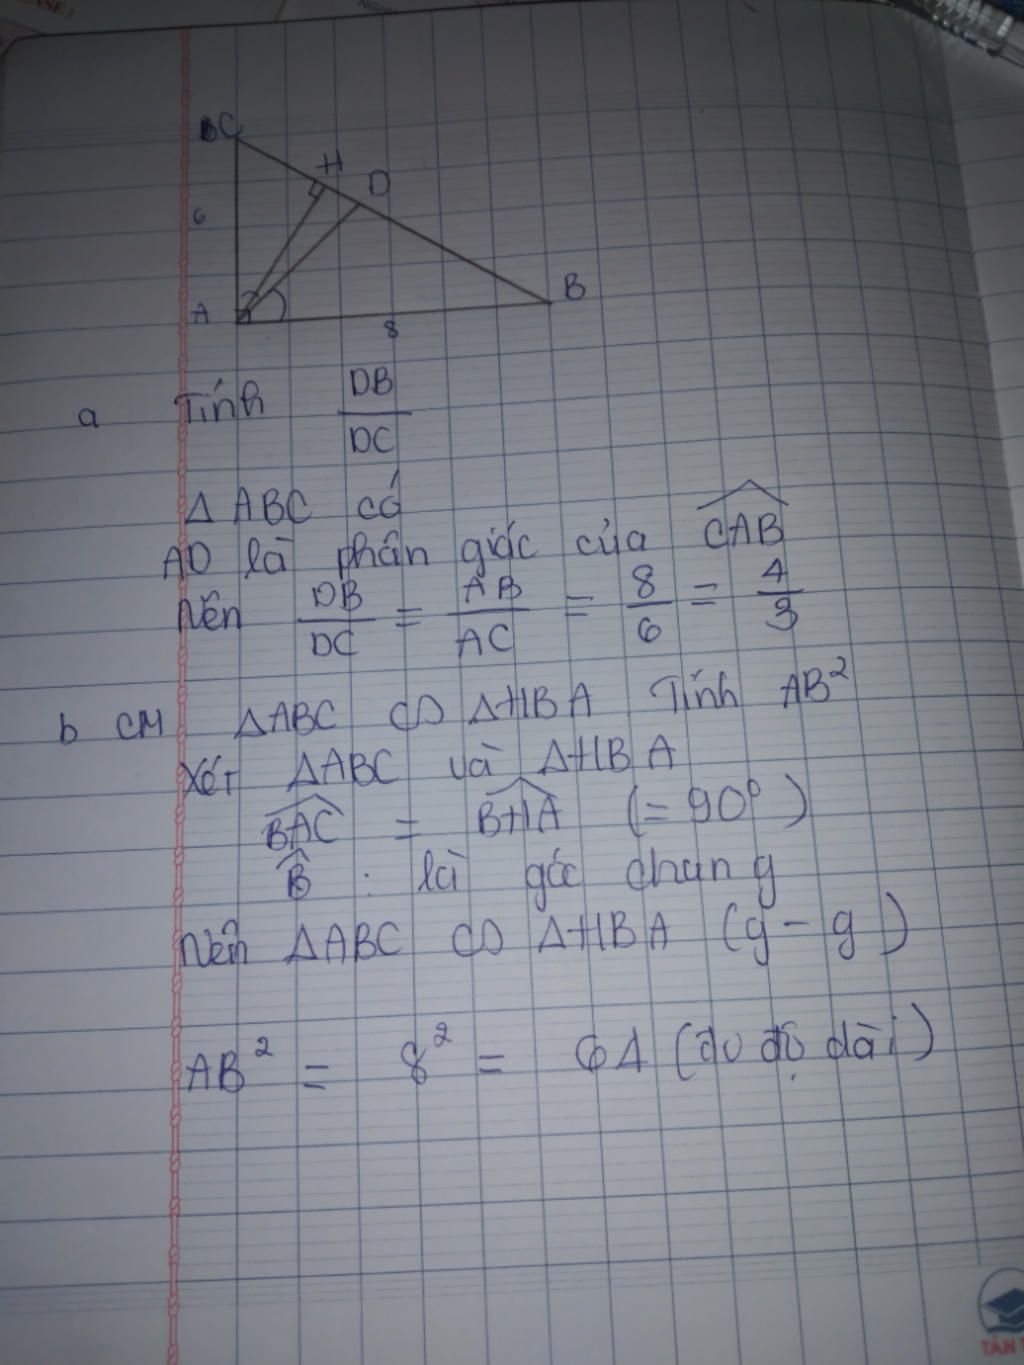 BC
H
D
6
A
B
8
a Tính DB/DC
Δ ABC có
AD là phân giác của CAB
Nên DB/DC = AB/AC = 8/6 = 4/3
b CM ΔABC ∽ ΔHBA Tính AB²
Xét ΔABC và ΔHBA
BAC = BHA (= 90°)
B̂ : là góc chung
Nên ΔABC ∽ ΔHBA (g - g)
AB² = 8² = 64 (đv độ dài)
TÂN